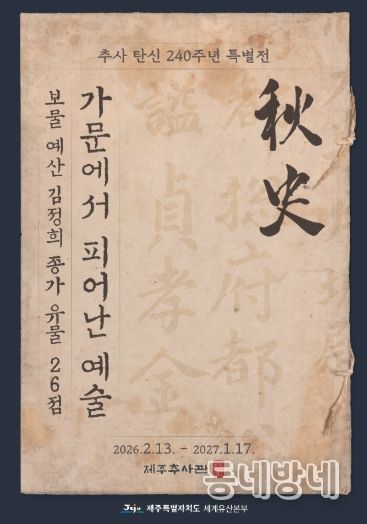 추사 탄신 240주년 특별전
秋史
가문에서 피어난 예술
보물 예산 김정희 종가 유물 26점
諡貞孝金
府都
2026.2.13. - 2027.1.17.
제주추사관
동네방네
Jeju 제주특별자치도 세계유산본부